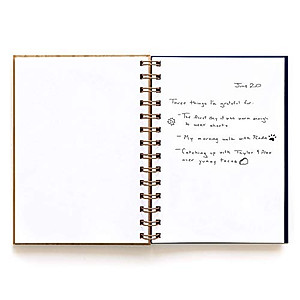 June 20
Three things I'm grateful for:
- The first day it was warm enough
to wear shorts
- My morning walk with
- Catching up with Taylor &
over yummy tacos